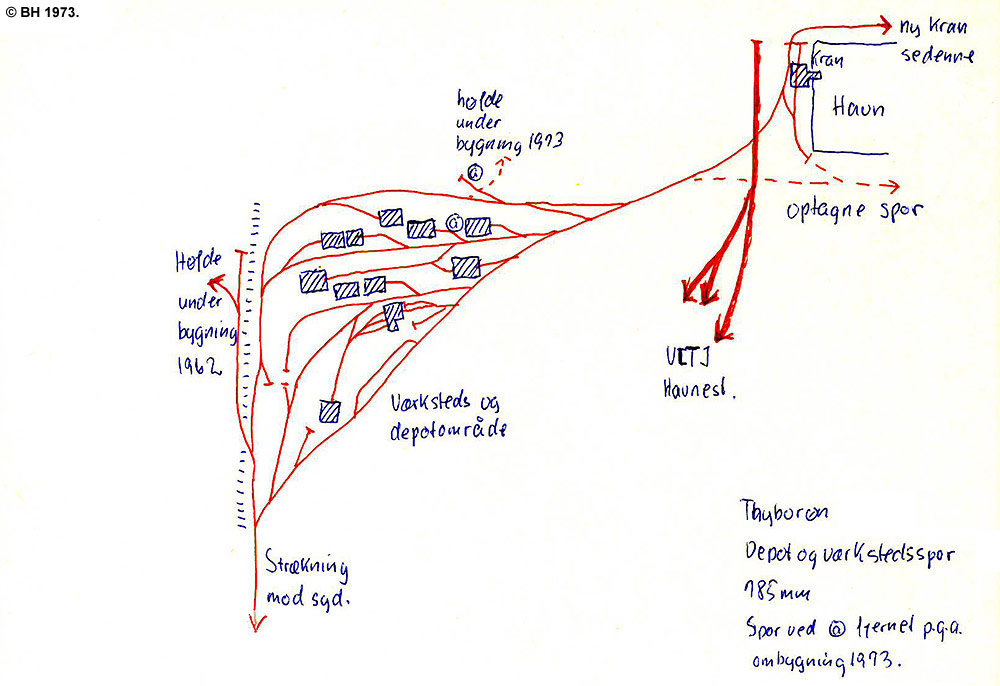 © BH 1973.
ny Kran
sedenne
Kran
Havn
høfde
under
bygning 1973
ⓐ
ⓐ
optagne spor
Høfde
under
bygning
1962
VLTJ
Havnest.
Værksteds og
depotområde
Thyborøn
Depot og værkstedsspor
785 mm
Spor ved ⓐ fjernet p.g.a.
ombygning 1973.
Strækning
mod syd.